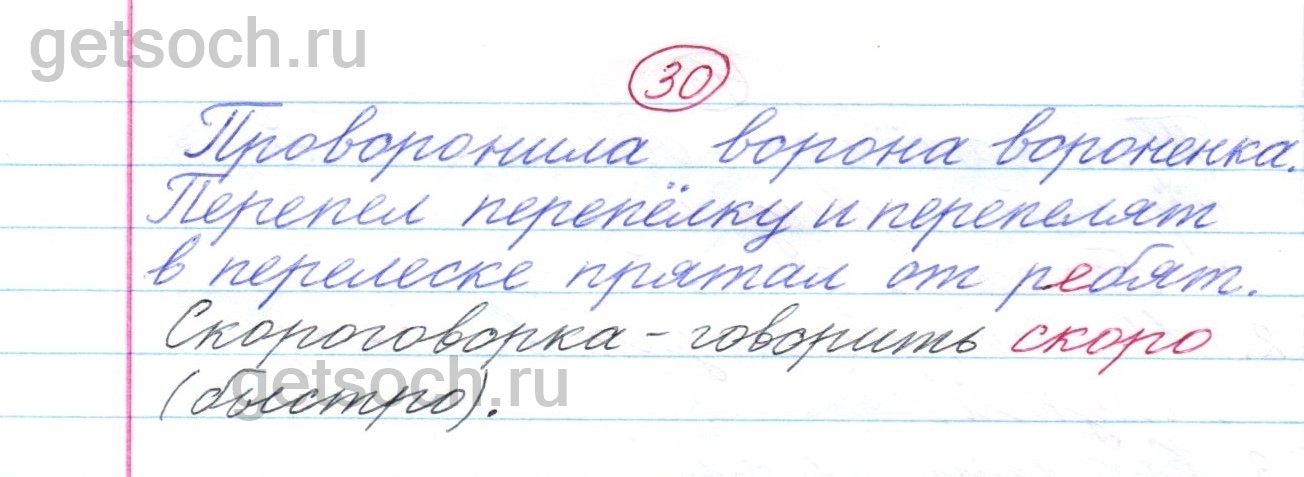 getsoch.ru
30
Проворонила ворона вороненка.
Перепел перепёлку и перепелят
в перелеске прятал от ребят.
Скороговорка - говорить скоро
(быстро).
getsoch.ru